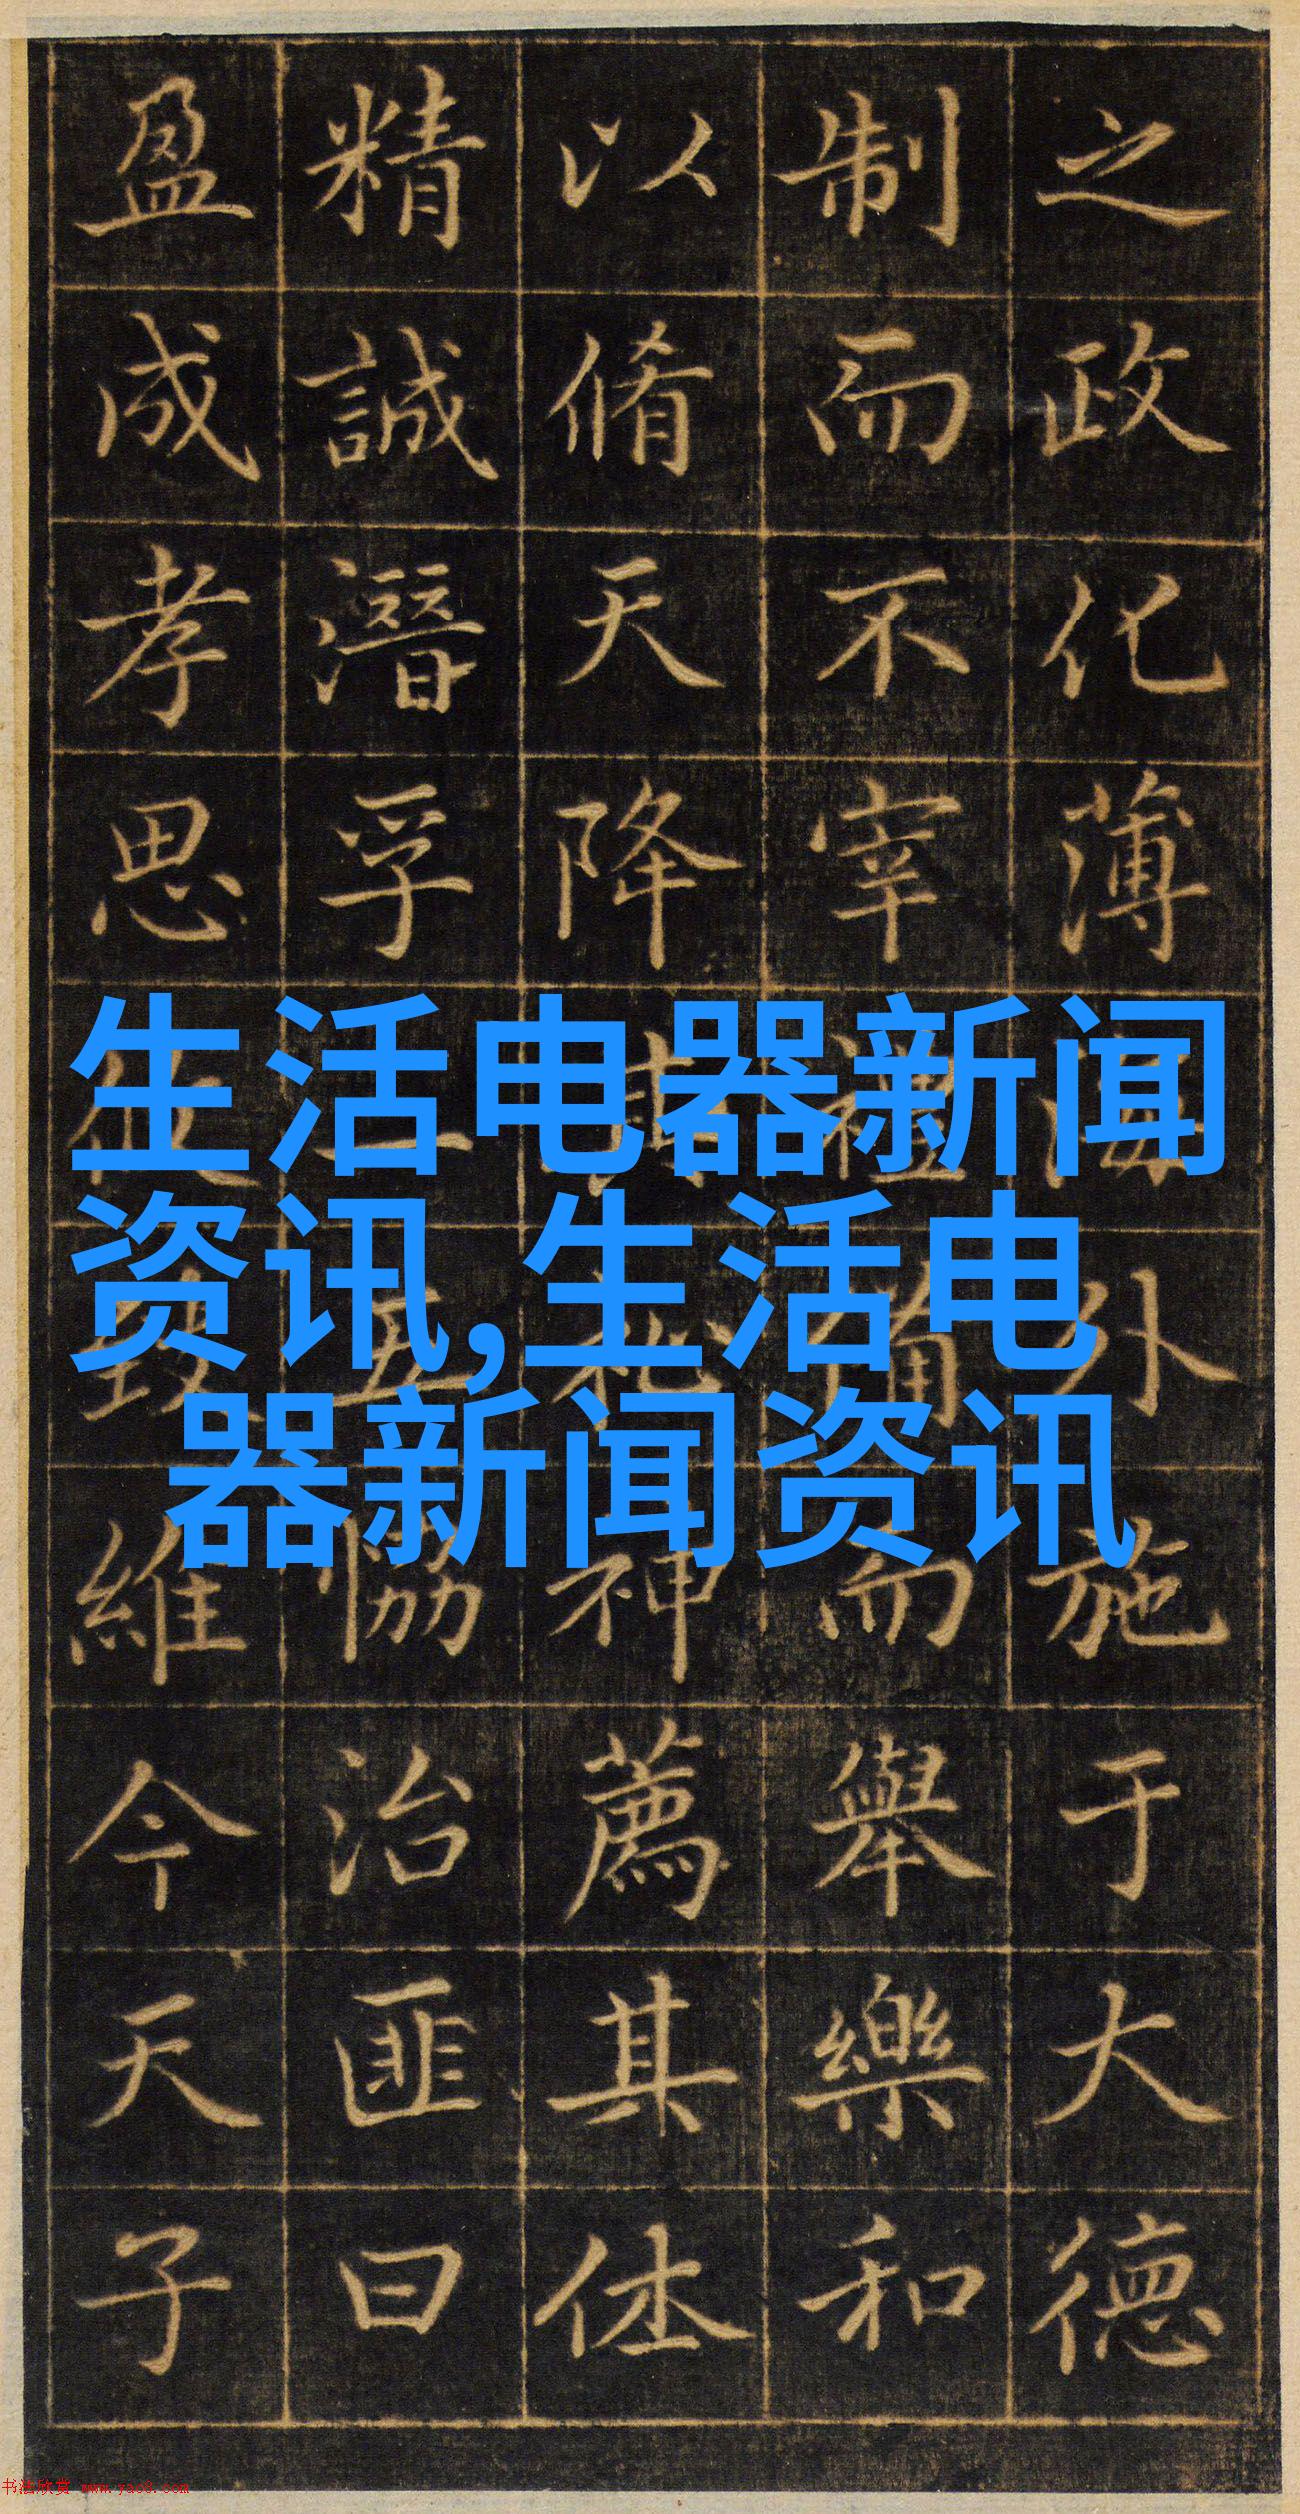 之政化薄海外施于大德
制而不宰禮備而舉樂和
以脩天降其礼神薦其休
精誠潛孚五協治匪曰
盈成孝思致維今天子
生活电器新闻
资讯,生活电
器新闻资讯
书法欣赏 www.yac8.com